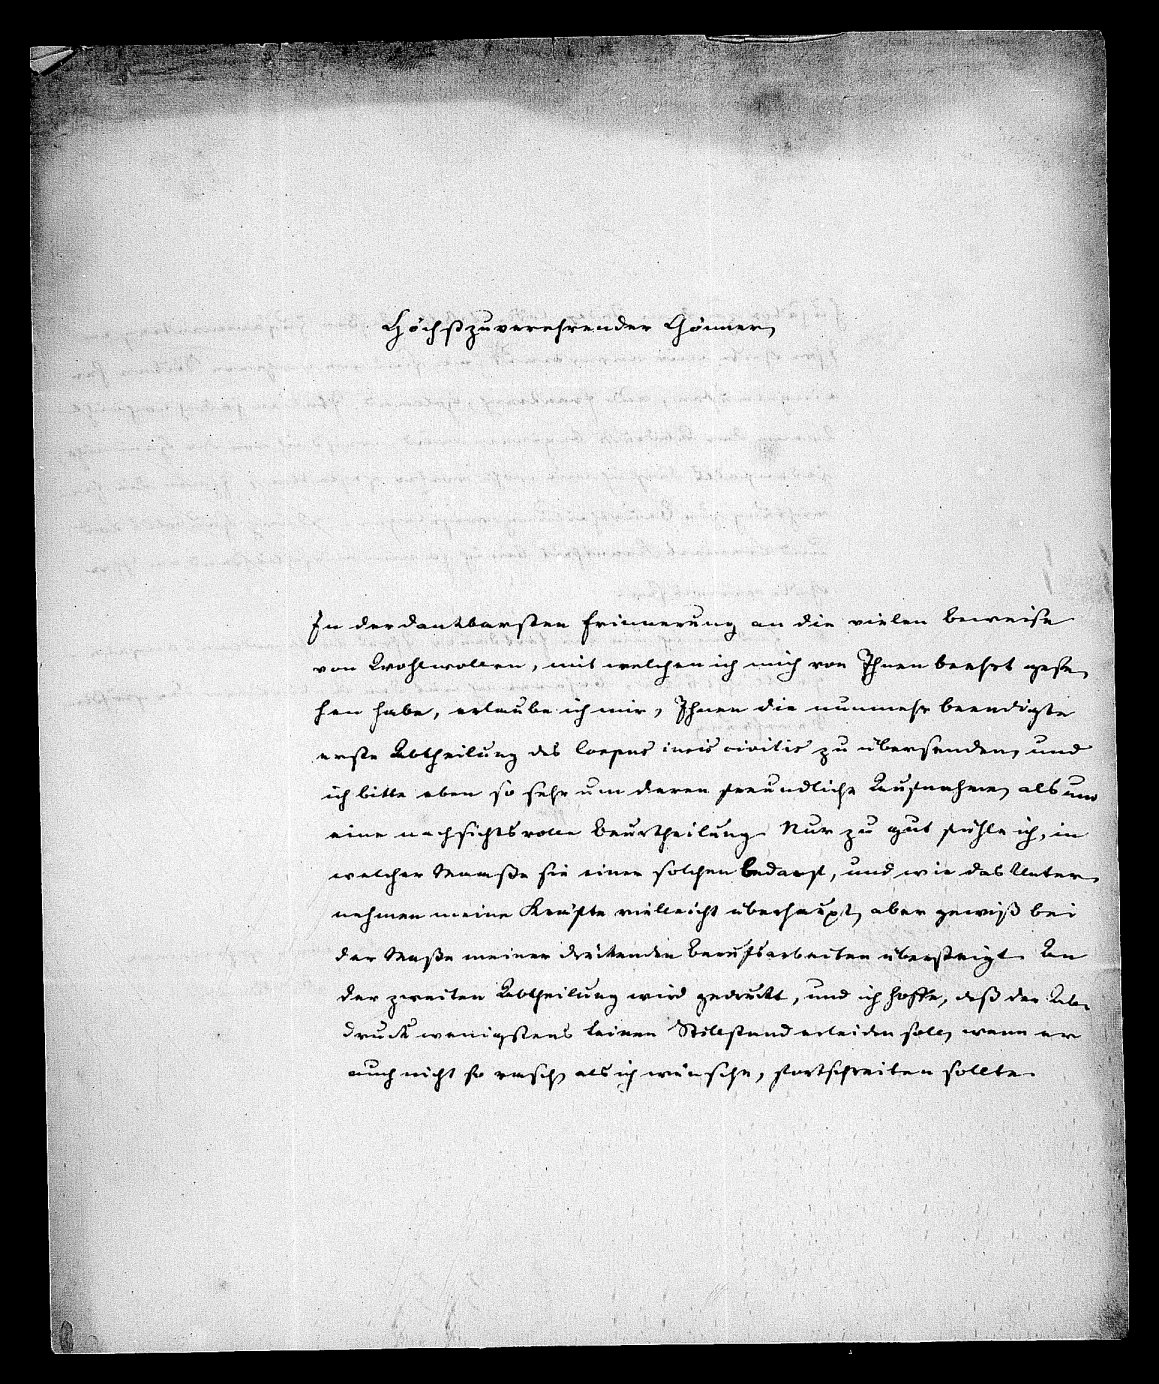 Höchstzuverehrender Gönner,
In der dankbarsten Erinnerung an die vielen Beweise
von Wohlwollen, mit welchen ich mich von Ihnen beehrt gese,
hen habe, erlaube ich mir, Ihnen die nunmehr beendigte
erste Abtheilung des Corpus iuris civilis zu übersenden, und
ich bitte eben so sehr um deren freundliche Aufnahme, als um
eine nachsichtsvolle Beurtheilung. Nur zu gut fühle ich, in
welcher Maaße sie einer solchen bedarf, und wie das Unter,
nehmen meine Kräfte vielleicht überhaupt, aber gewiß bei
der Maße meiner drückenden Berufsarbeiten übersteigt. An
der zweiten Abtheilung wird gedruckt, und ich hoffe, daß der Ab,
druck wenigstens keinen Stillstand erleiden soll, wenn er
auch nicht so rasch, als ich wünsche, fortschreiten sollte.